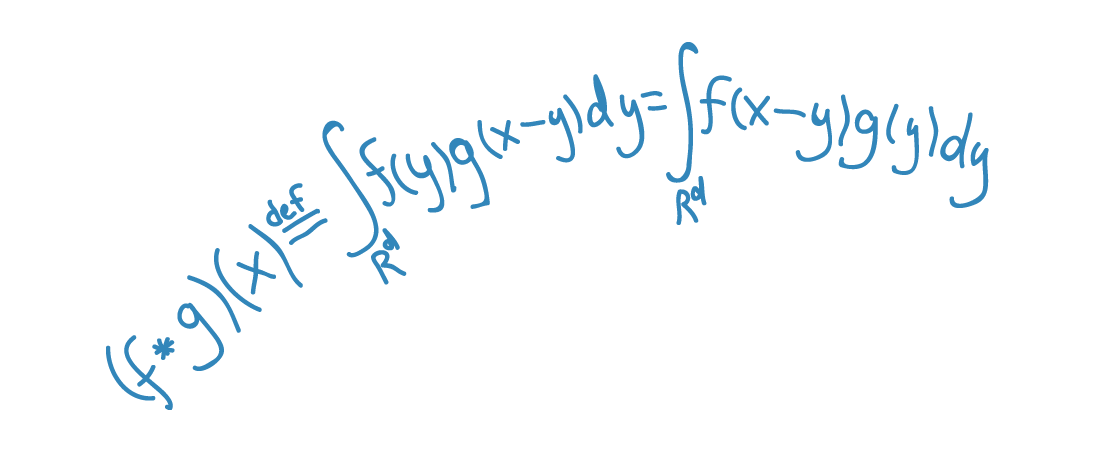 (f*g)(x) \overset{def}{=} \int_{R^d} f(y)g(x-y)dy = \int_{R^d} f(x-y)g(y)dy